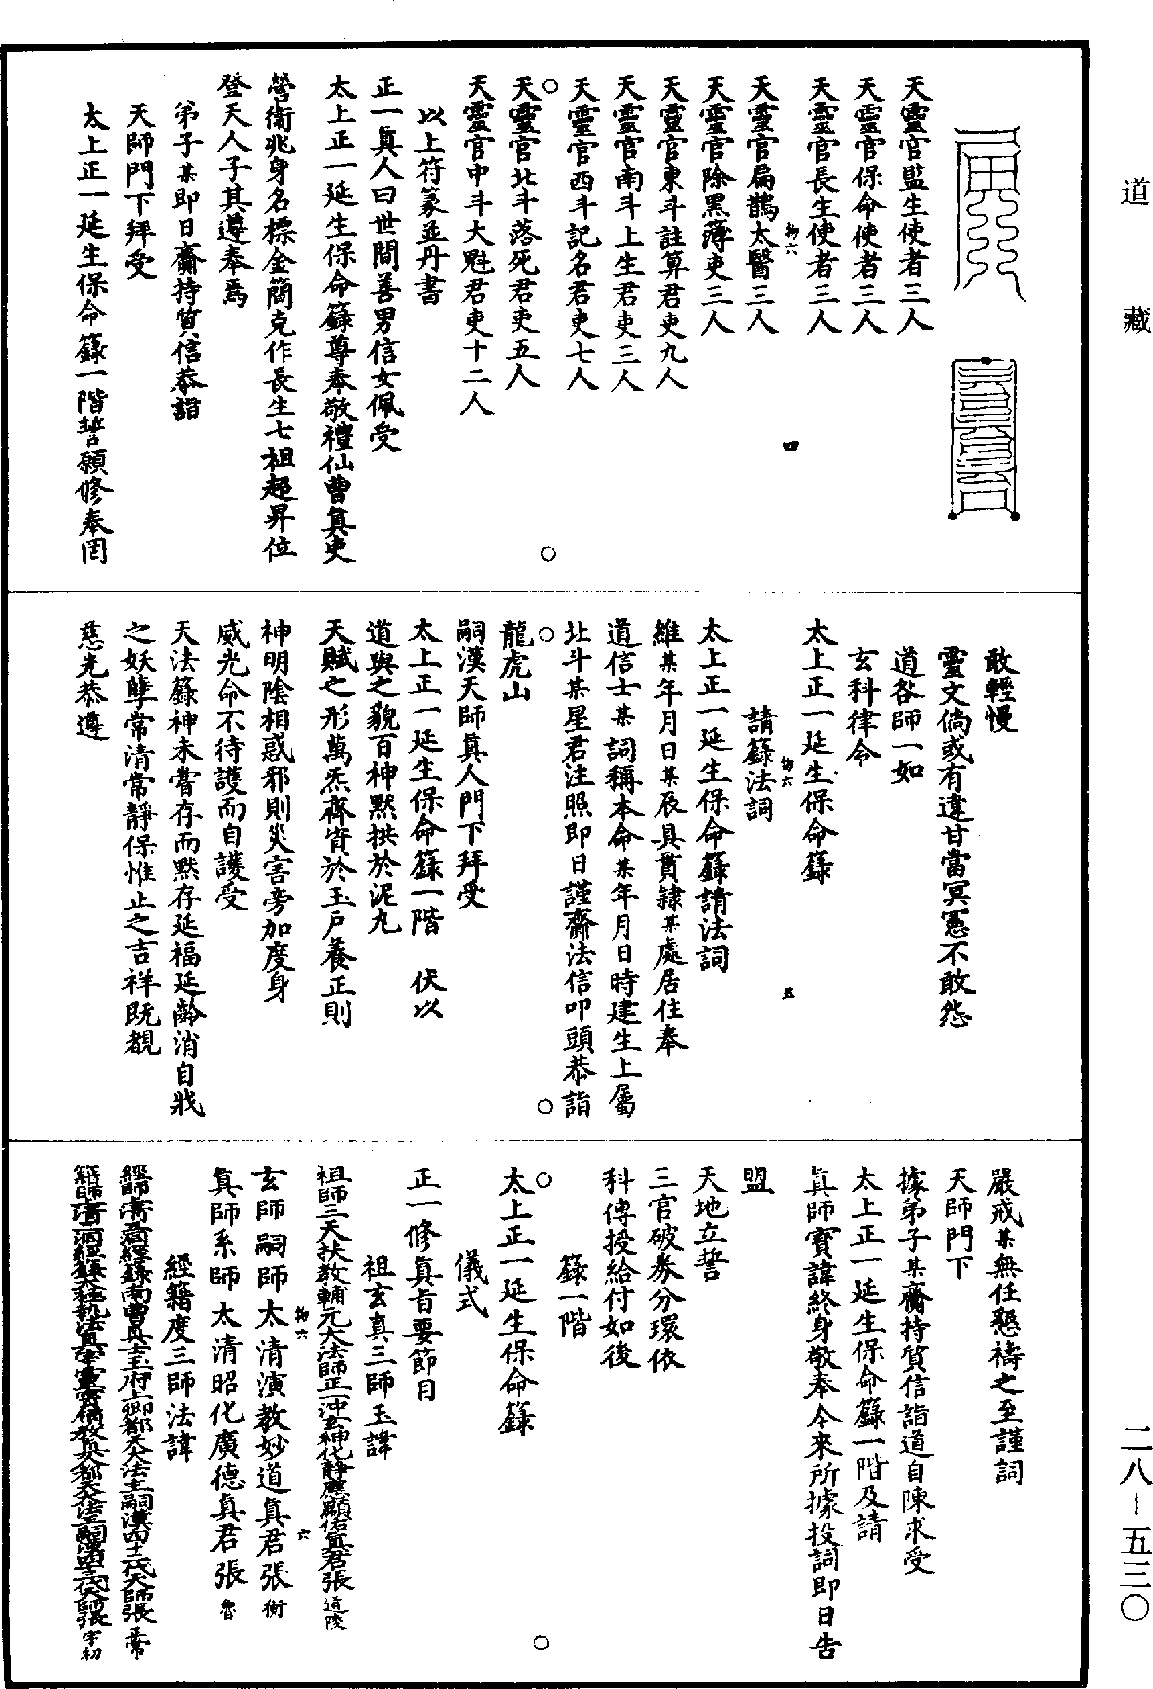 道藏
天靈官監生使者三人
天靈官保命使者三人
天靈官長生使者三人
天靈官扁鵲太醫三人
天靈官除黑簿吏三人
天靈官東斗註算君吏九人
天靈官南斗上生君吏三人
天靈官西斗記名君吏七人
天靈官北斗落死君吏五人
天靈官中斗大魁君吏十二人
以上符篆並丹書
正一真人曰世間善男信女佩受
太上正一延生保命籙尊奉敬禮仙曹真吏
營衛兆身名標金簡克作長生七祖超昇位
登天人子其遵奉焉
弟子某即日齎持質信恭詣
天師門下拜受
太上正一延生保命籙一階誓願修奉罔
敢輕慢
靈文倘或有違甘當冥憲不敢怨
道咎師一如
玄科律令
太上正一延生保命籙
五
請籙法詞
太上正一延生保命籙請法詞
維某年月日某辰具貫隸某處居住奉
道信士某詞稱本命某年月日時建生上屬
北斗某星君注照即日謹齎法信叩頭恭詣
龍虎山
嗣漢天師真人門下拜受
太上正一延生保命籙一階 伏以
道與之貌百神默拱於泥丸
天賦之形萬炁齊資於玉戶養正則
神明陰相惑邪則災害旁加度身
威光命不待護而自護受
天法籙神未嘗存而默存延福延齡消自戕
之妖孽常清常靜保惟止之吉祥既覩
慈光恭遵
嚴戒某無任懇禱之至謹詞
天師門下
據弟子某齎持質信詣道自陳求受
太上正一延生保命籙一階及請
真師寶諱終身敬奉今來所據投詞即日告
盟
天地立誓
三官破券分環依
科傳授給付如後
籙一階
太上正一延生保命籙
儀式
正一修真旨要節目
祖玄真三師玉諱
祖師三天扶教輔元大法師正一沖玄神化靜應顯佑真君張道陵
玄師嗣師太清演教妙道真君張衡
真師系師太清昭化廣德真君張魯
經籍度三師法諱
二八－五三〇